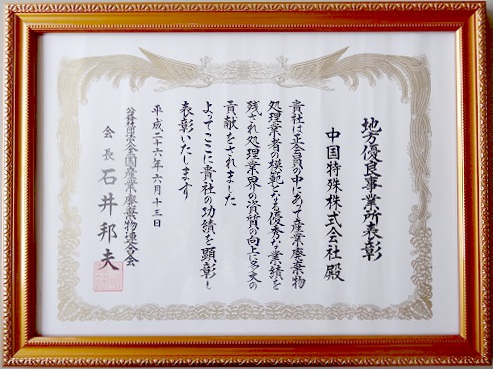 地方優良事業所表彰
中国特殊株式会社殿
貴社は正会員の中にあって産業廃棄物
処理業者の模範となる優秀な業績を
残され処理業界の資質の向上に多大の
貢献をされました
よってここに貴社の功績を顕彰し
表彰いたします
平成二十六年六月十三日
公益社団法人全国産業廃棄物連合会
会長 石井邦夫